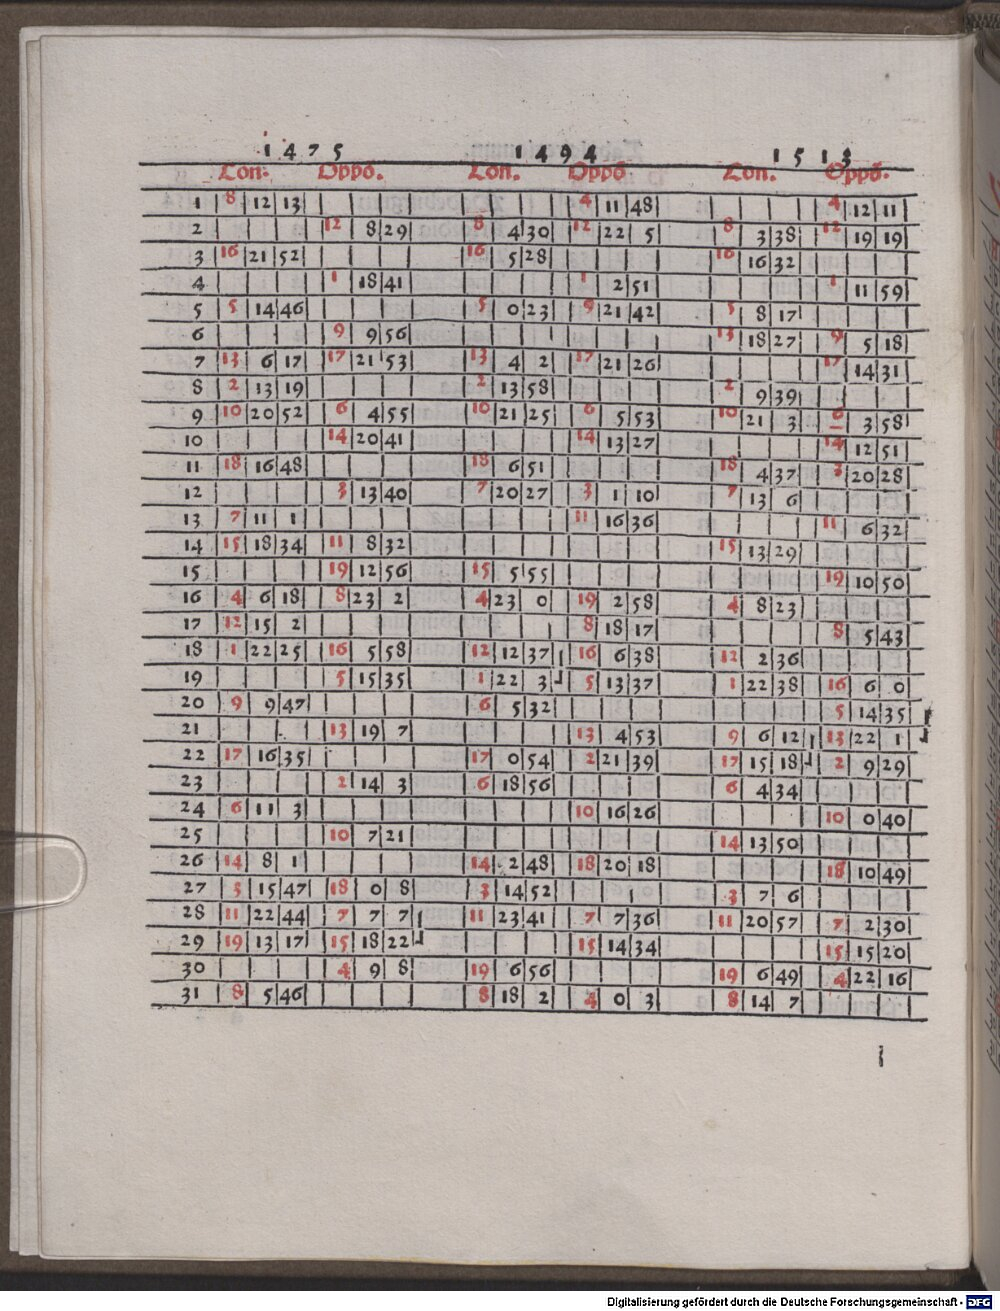 1475 1494 1513
Con. Oppo. Con. Oppo Con. Oppo.
1 8 12 13 4 11 48 4 12 11
2 12 8 29 8 4 30 12 22 5 8 3 38 12 19 19
3 16 21 52 16 5 28 16 16 32
4 1 18 41 1 2 51 1 11 59
5 5 14 46 5 0 23 9 21 42 5 8 17
6 9 9 56 13 18 27 9 5 18
7 13 6 17 17 21 53 13 4 2 17 21 26 17 14 31
8 2 13 19 2 13 58 2 9 39
9 10 20 52 6 4 55 10 21 25 6 5 53 10 21 3 6 3 58
10 14 20 41 14 13 27 14 12 51
11 18 16 48 18 6 51 18 4 37 3 20 28
12 3 13 40 7 20 27 3 1 10 7 13 6
13 7 11 1 11 16 36 11 6 32
14 15 18 34 11 8 32 15 13 29
15 19 12 56 15 5 55 19 10 50
16 4 6 18 8 23 2 4 23 0 19 2 58 4 8 23
17 12 15 2 8 18 17 8 5 43
18 1 22 25 16 5 58 12 12 37 16 6 38 12 2 36
19 5 15 35 1 22 3 5 13 37 1 22 38 16 6 0
20 9 9 47 6 5 32 5 14 35
21 13 19 7 13 4 53 9 6 12 13 22 1
22 17 16 35 17 0 54 2 21 39 17 15 18 2 9 29
23 2 14 3 6 18 56 6 4 34
24 6 11 3 10 16 26 10 0 40
25 10 7 21 14 13 50
26 14 8 1 14 2 48 18 20 18 18 10 49
27 3 15 47 18 0 8 3 14 52 3 7 6
28 11 22 44 7 7 7 11 23 41 7 7 36 11 20 57 7 2 30
29 19 13 17 15 18 22 15 14 34 15 15 20
30 4 9 8 19 6 56 19 6 49 4 22 16
31 8 5 46 8 18 2 4 0 3 8 14 7
Digitalisierung gefördert durch die Deutsche Forschungsgemeinschaft - DFG